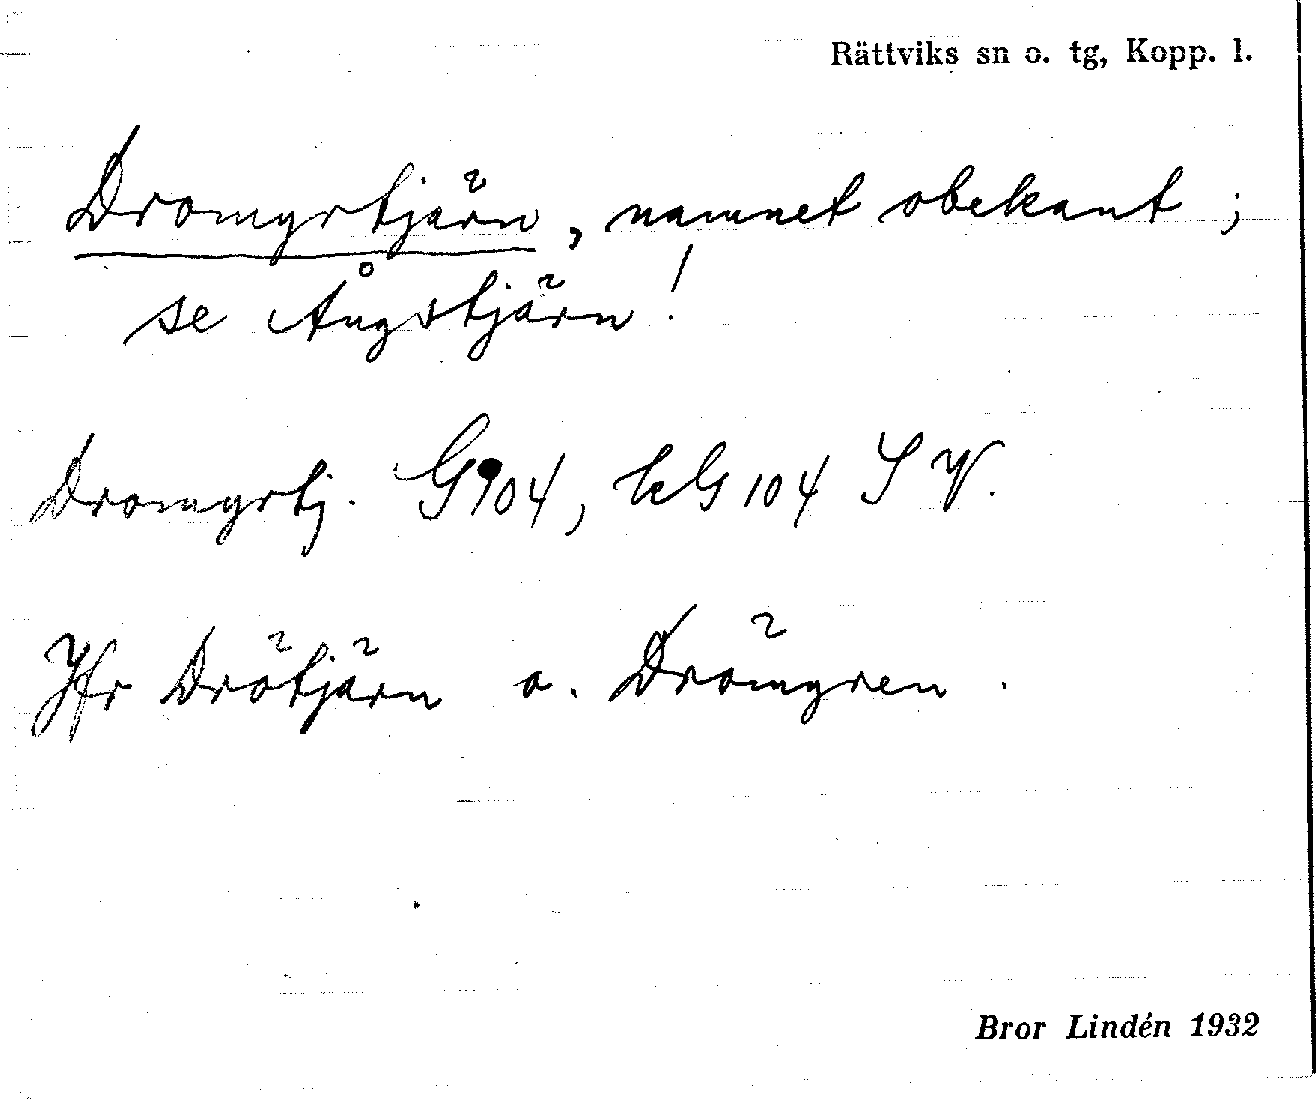 Rättviks sn o. tg, Kopp. l.
Dromyrstjärn, namnet obekant;
se Ångstjärn!
Dromyrstj. G904, kG 104 SV.
Jfr Drötjärn o. Drömyren.
Bror Lindén 1932